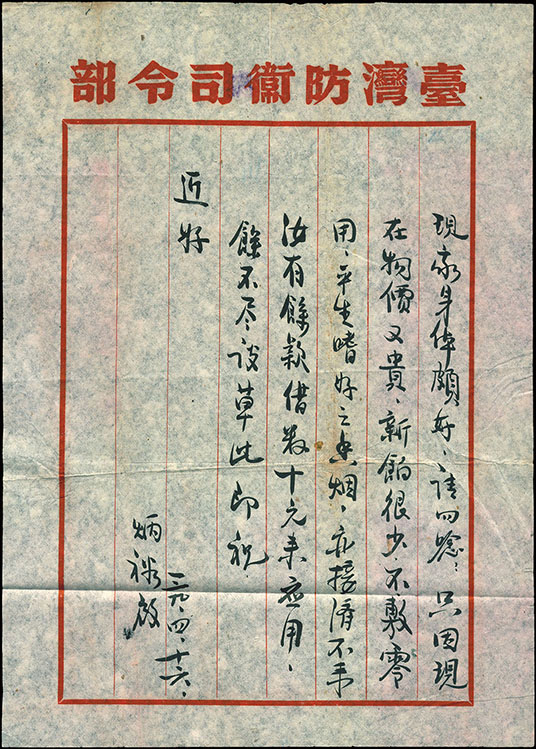 臺灣防衞司令部
現我身体頗好、請勿唸、只因現
在物價又貴、新餉很少不敷零
用、平生嗜好之香烟、亦接濟不来
汝有餘款借数十元来应用、
餘不尽談草此即祝
近好
炳啟
三九、四、十六、